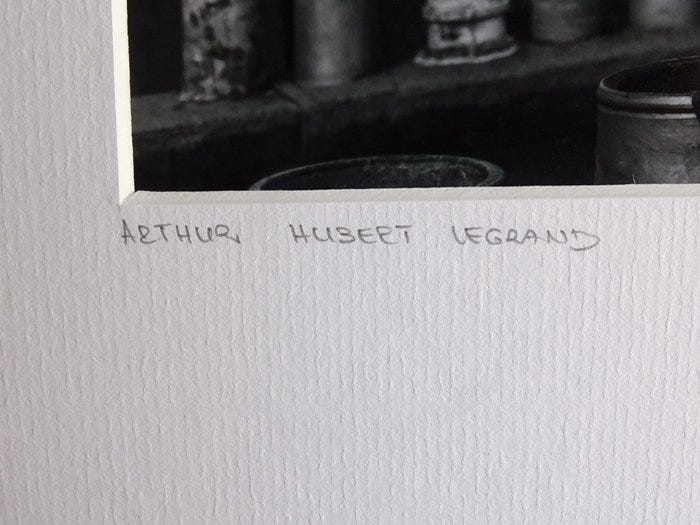 ARTHUR HUBERT LEGRAND